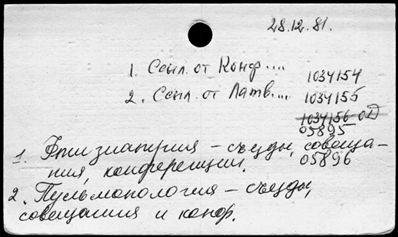 28.12.81.
1. Ссыл. от Конф....
1034154
2. Ссыл. от Латв....
1034155
1034156 од
05895
1. Фтизиатрия – съезды, совеща-
ния, конференции.
05896
2. Пульмонология – съезды,
совещания и конф.